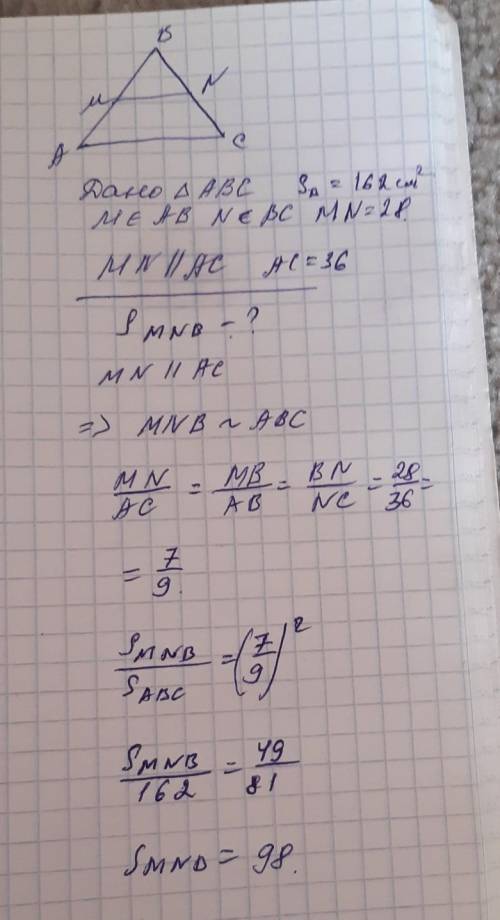 B
M N
A C
Дано △ ABC S△ = 162 cm²
M ∈ AB N ∈ BC MN = 28.
MN || AC AC = 36
S MNB - ?
MN || AC
=> MNB ~ ABC
MN/AC = MB/AB = BN/NC = 28/36 =
= 7/9.
S MNB / S ABC = (7/9)²
S MNB / 162 = 49/81
S MNB = 98.